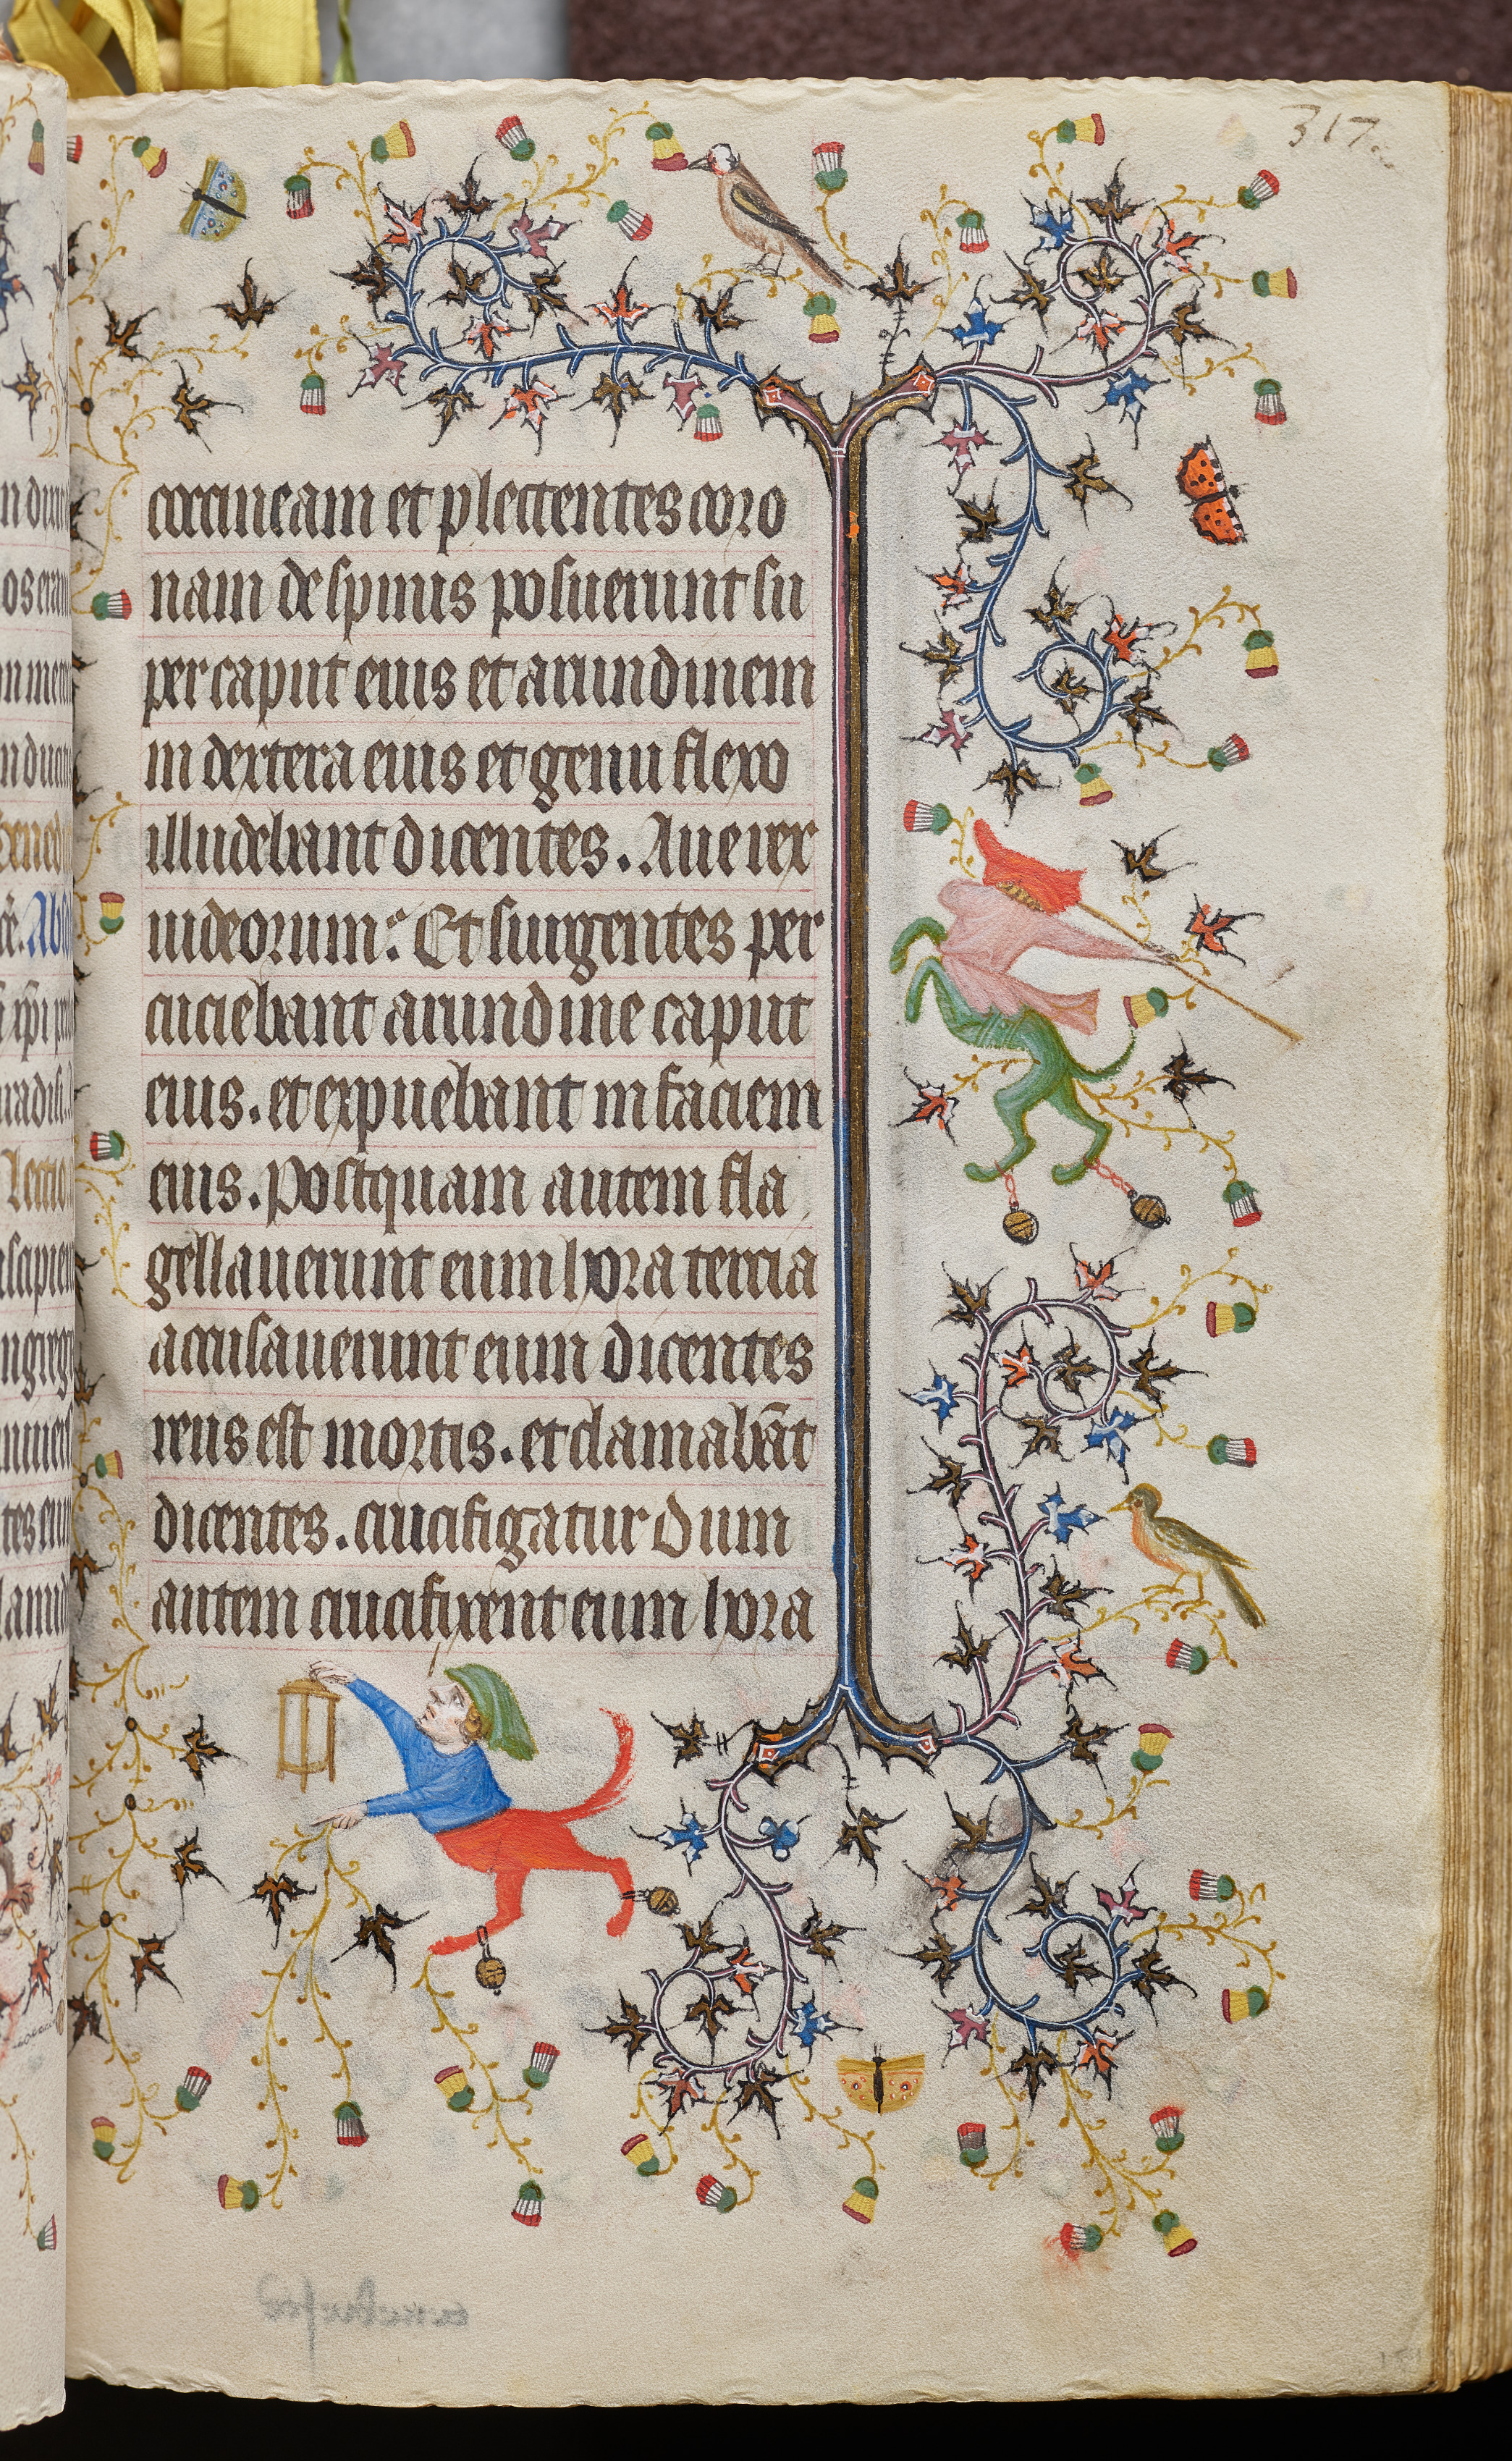 317
coccineam et plectentes coro
nam de spinis posuerunt su
per caput eius et arundinem
in dextera eius et genu flexo
illudebant dicentes. Aue rex
iudeorum: Et surgentes per
cuciebant arundine caput
eius. et expuebant in faciem
eius. Postquam autem fla
gellauerunt eum hora tercia
accusauerunt eum dicentes
reus est mortis. et clamabāt
dicentes. crucifigatur dum
autem crucifixerent eum hora